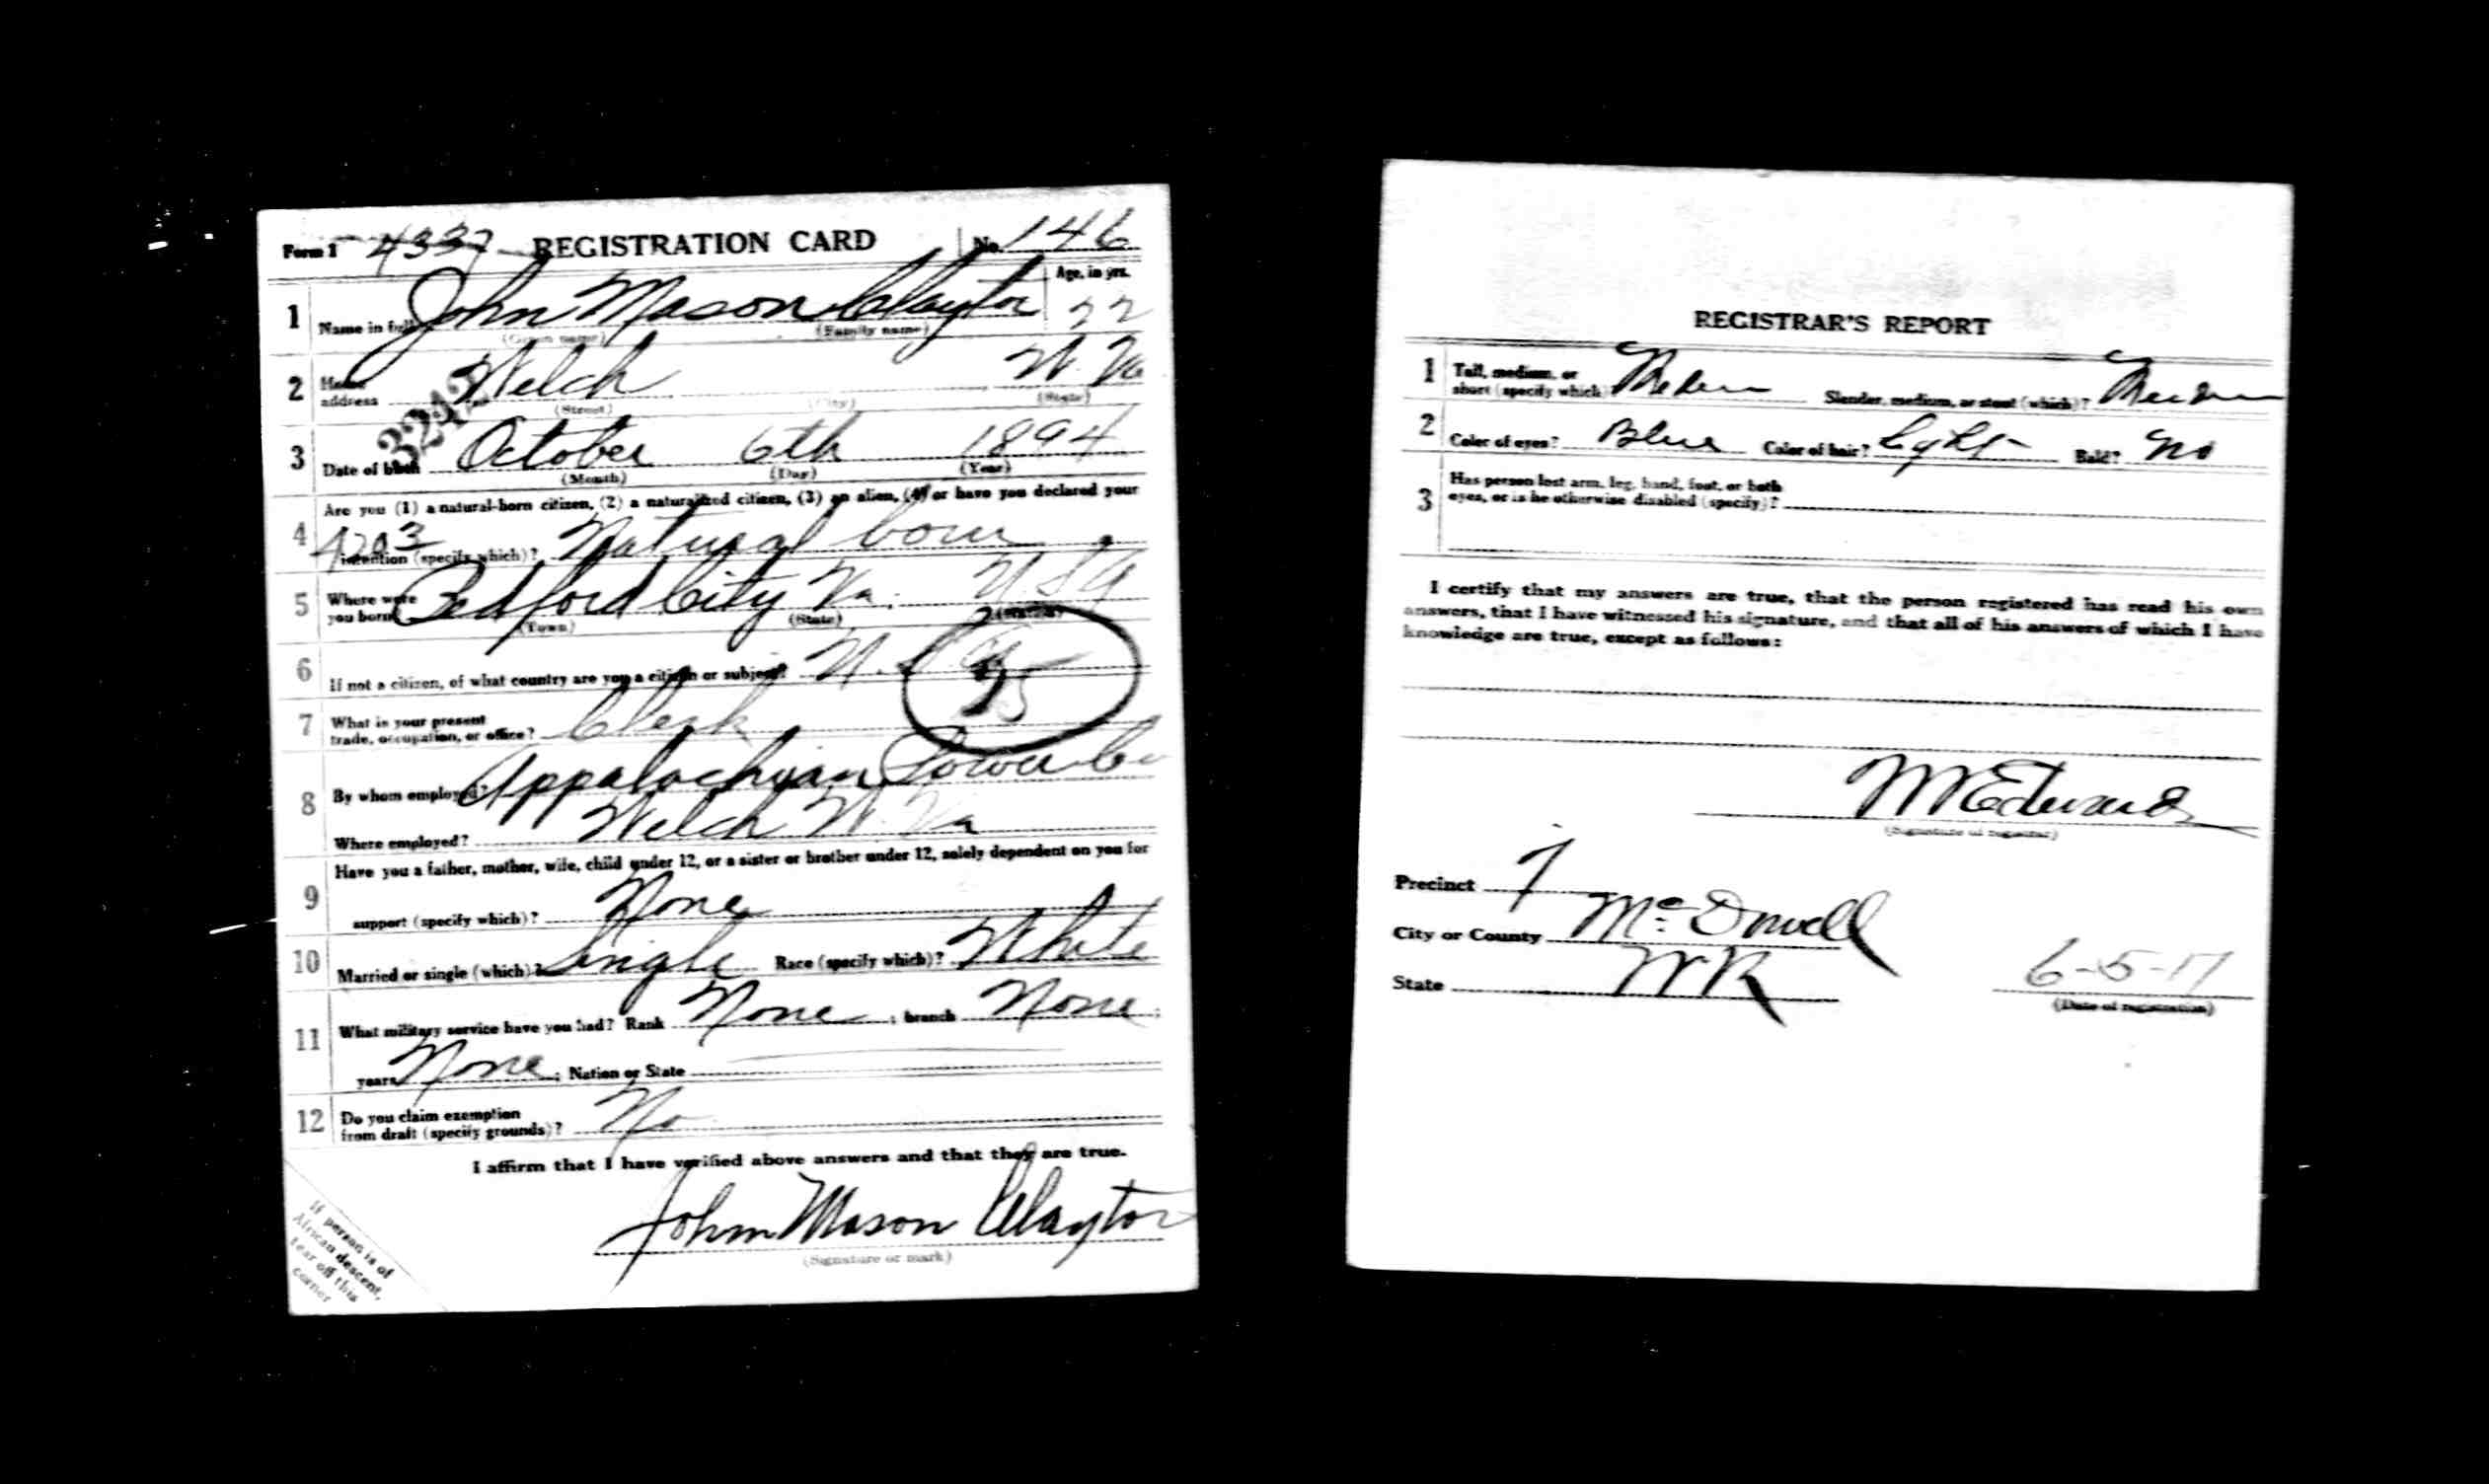 Form 1 4337 REGISTRATION CARD No. 146
1 Name in full John Mason Claytor Age, in yrs. 22
(Given name) (Family name)
2 Home address Welch W. Va
(Street) (City) (State)
3242
3 Date of birth October 6th 1894
(Month) (Day) (Year)
Are you (1) a natural-born citizen, (2) a naturalized citizen, (3) an alien, (4) or have you declared your
4 intention (specify which)? Natural born
4203
5 Where were you born? Bedford City Va. USA
(Town) (State) (Nation)
6 If not a citizen, of what country are you a citizen or subject?
7 What is your present trade, occupation, or office? Clerk
8 By whom employed? Appalachian Power Co
Where employed? Welch W. Va
9 Have you a father, mother, wife, child under 12, or a sister or brother under 12, solely dependent on you for
support (specify which)? None
10 Married or single (which)? Single Race (specify which)? White
11 What military service have you had? Rank None ; branch None ;
years None ; Nation or State
12 Do you claim exemption from draft (specify grounds)? No
I affirm that I have verified above answers and that they are true.
John Mason Claytor
(Signature or mark)
If person is of
African descent,
tear off this
corner
REGISTRAR'S REPORT
1 Tall, medium, or short (specify which)? Medium Slender, medium, or stout (which)? Medium
2 Color of eyes? Blue Color of hair? Light Bald? No
3 Has person lost arm, leg, hand, foot, or both
eyes, or is he otherwise disabled (specify)?
I certify that my answers are true, that the person registered has read his own
answers, that I have witnessed his signature, and that all of his answers of which I have
knowledge are true, except as follows:
M Edwards
(Signature of registrar)
Precinct 7
City or County McDowell
State 6-5-17
(Date of registration)